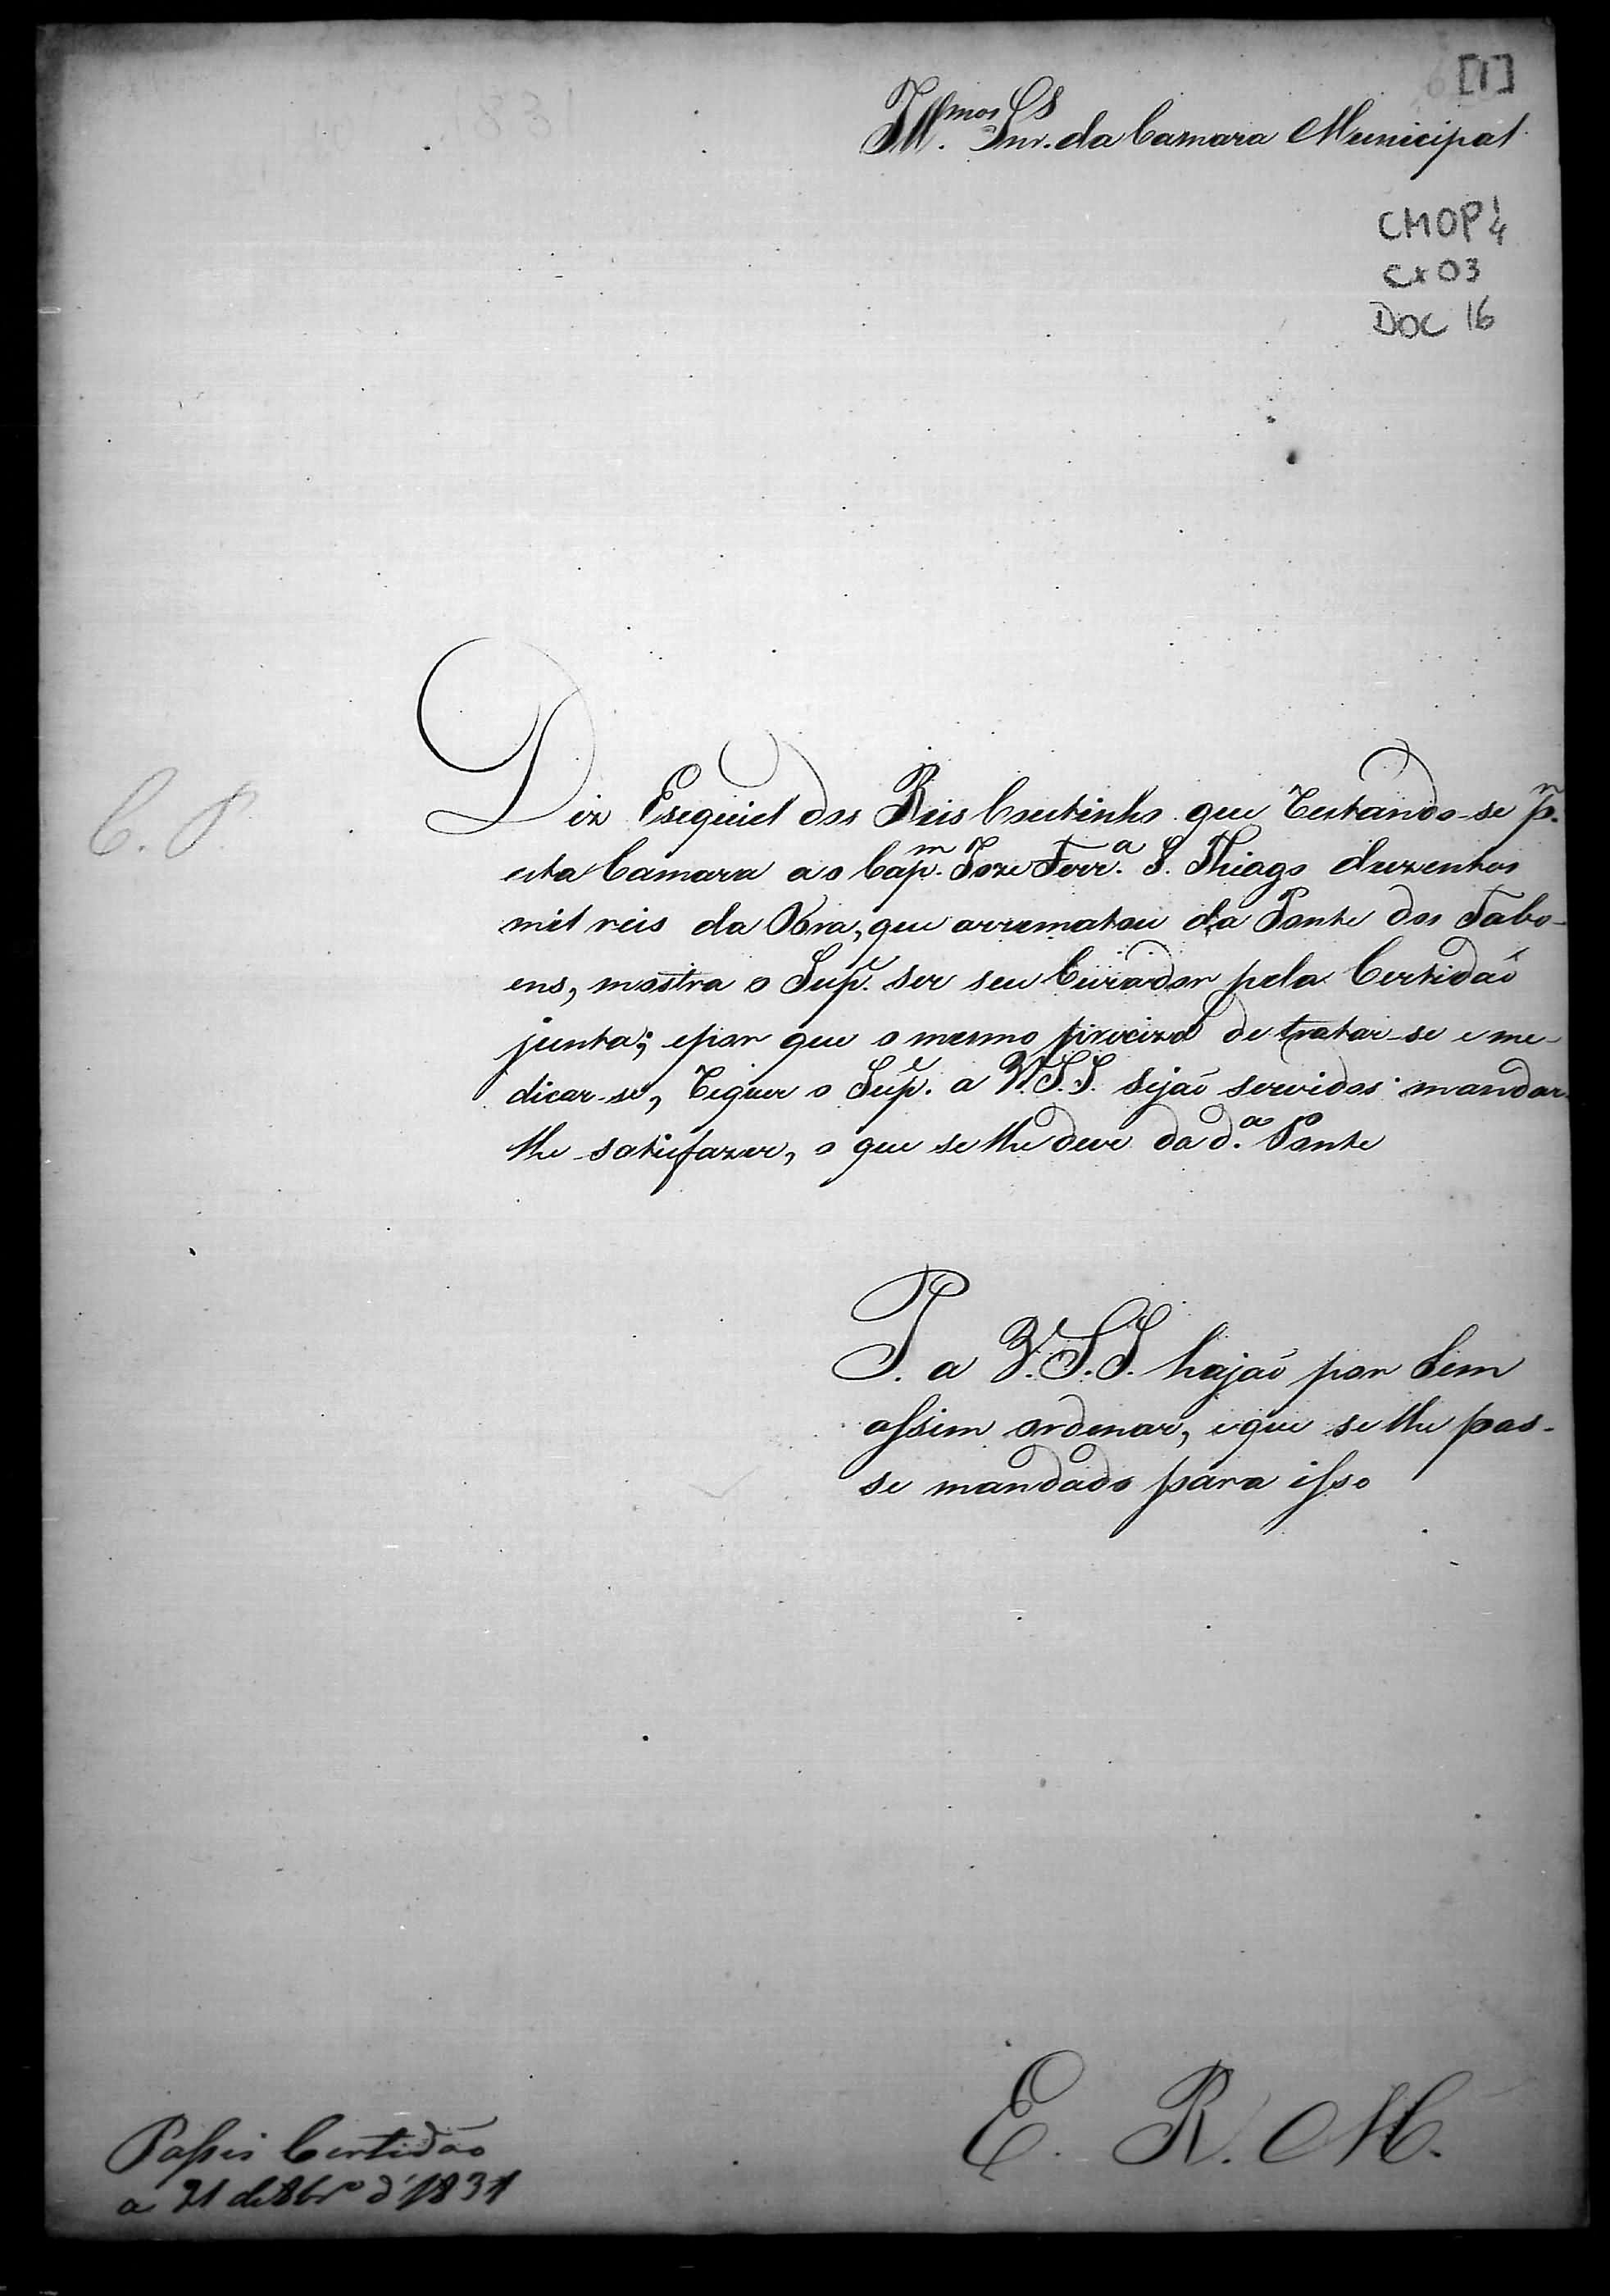 [1]
Ill.mos Snr.es da Camara Municipal
CMOP 1/4
cx 03
DOC 16
1831
C. P.
Diz Esequiel dos Reis Coutinho que restando-se p.r
esta Camara ao Cap.m Joze Ferr.a S. Thiago duzentos
mil reis da Obra, que arrematou da Ponte dos Tabo-
ens, mostra o Sup.e ser seu Curador pela Certidaõ
junta; e por que o mesmo preciza de tratar-se e me-
dicar-se, requer o Sup.e a V.S.S. sejaõ servidos mandar
lhe satisfazer, o que se lhe deve da d.a Ponte
P. a V.S.S. hajaõ por bem
assim ordenar, e que se lhe pas-
se mandado para isso
E. R. M.
Passei Certidão
a 21 de 8br.o d'1831